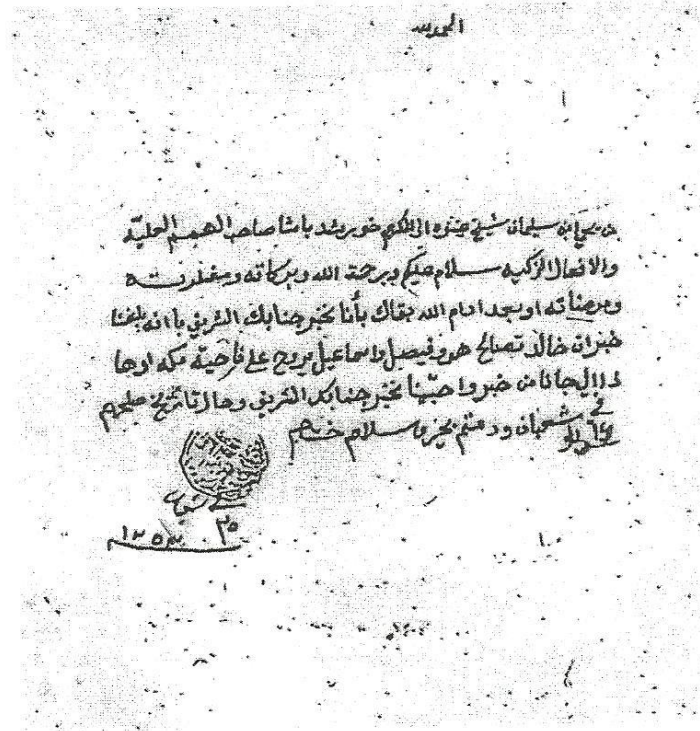 الحمد لله
من يحيى ابن سليمان شيخ عنيزه الى المكرم خورشيد باشا صاحب الهمم العليّه
والافعال الزكيه سلام عليكم ورحمة الله وبركاته ومغفلرته
ومرضاته او بعد ادام الله بقاك بأنا نخبر جنابك الشريف باانه بلغنا
خبر ان خالد تصالح هو وفيصل واسماعيل يروح على ناحية مكه اوها
ذاالي جانا من خبر واحبّينا نخبر جنابك الشريف وحال تاريخ صلحهم
في شعبان ودمتم بخير وسلام ختم
٢٥
١٢٥٣